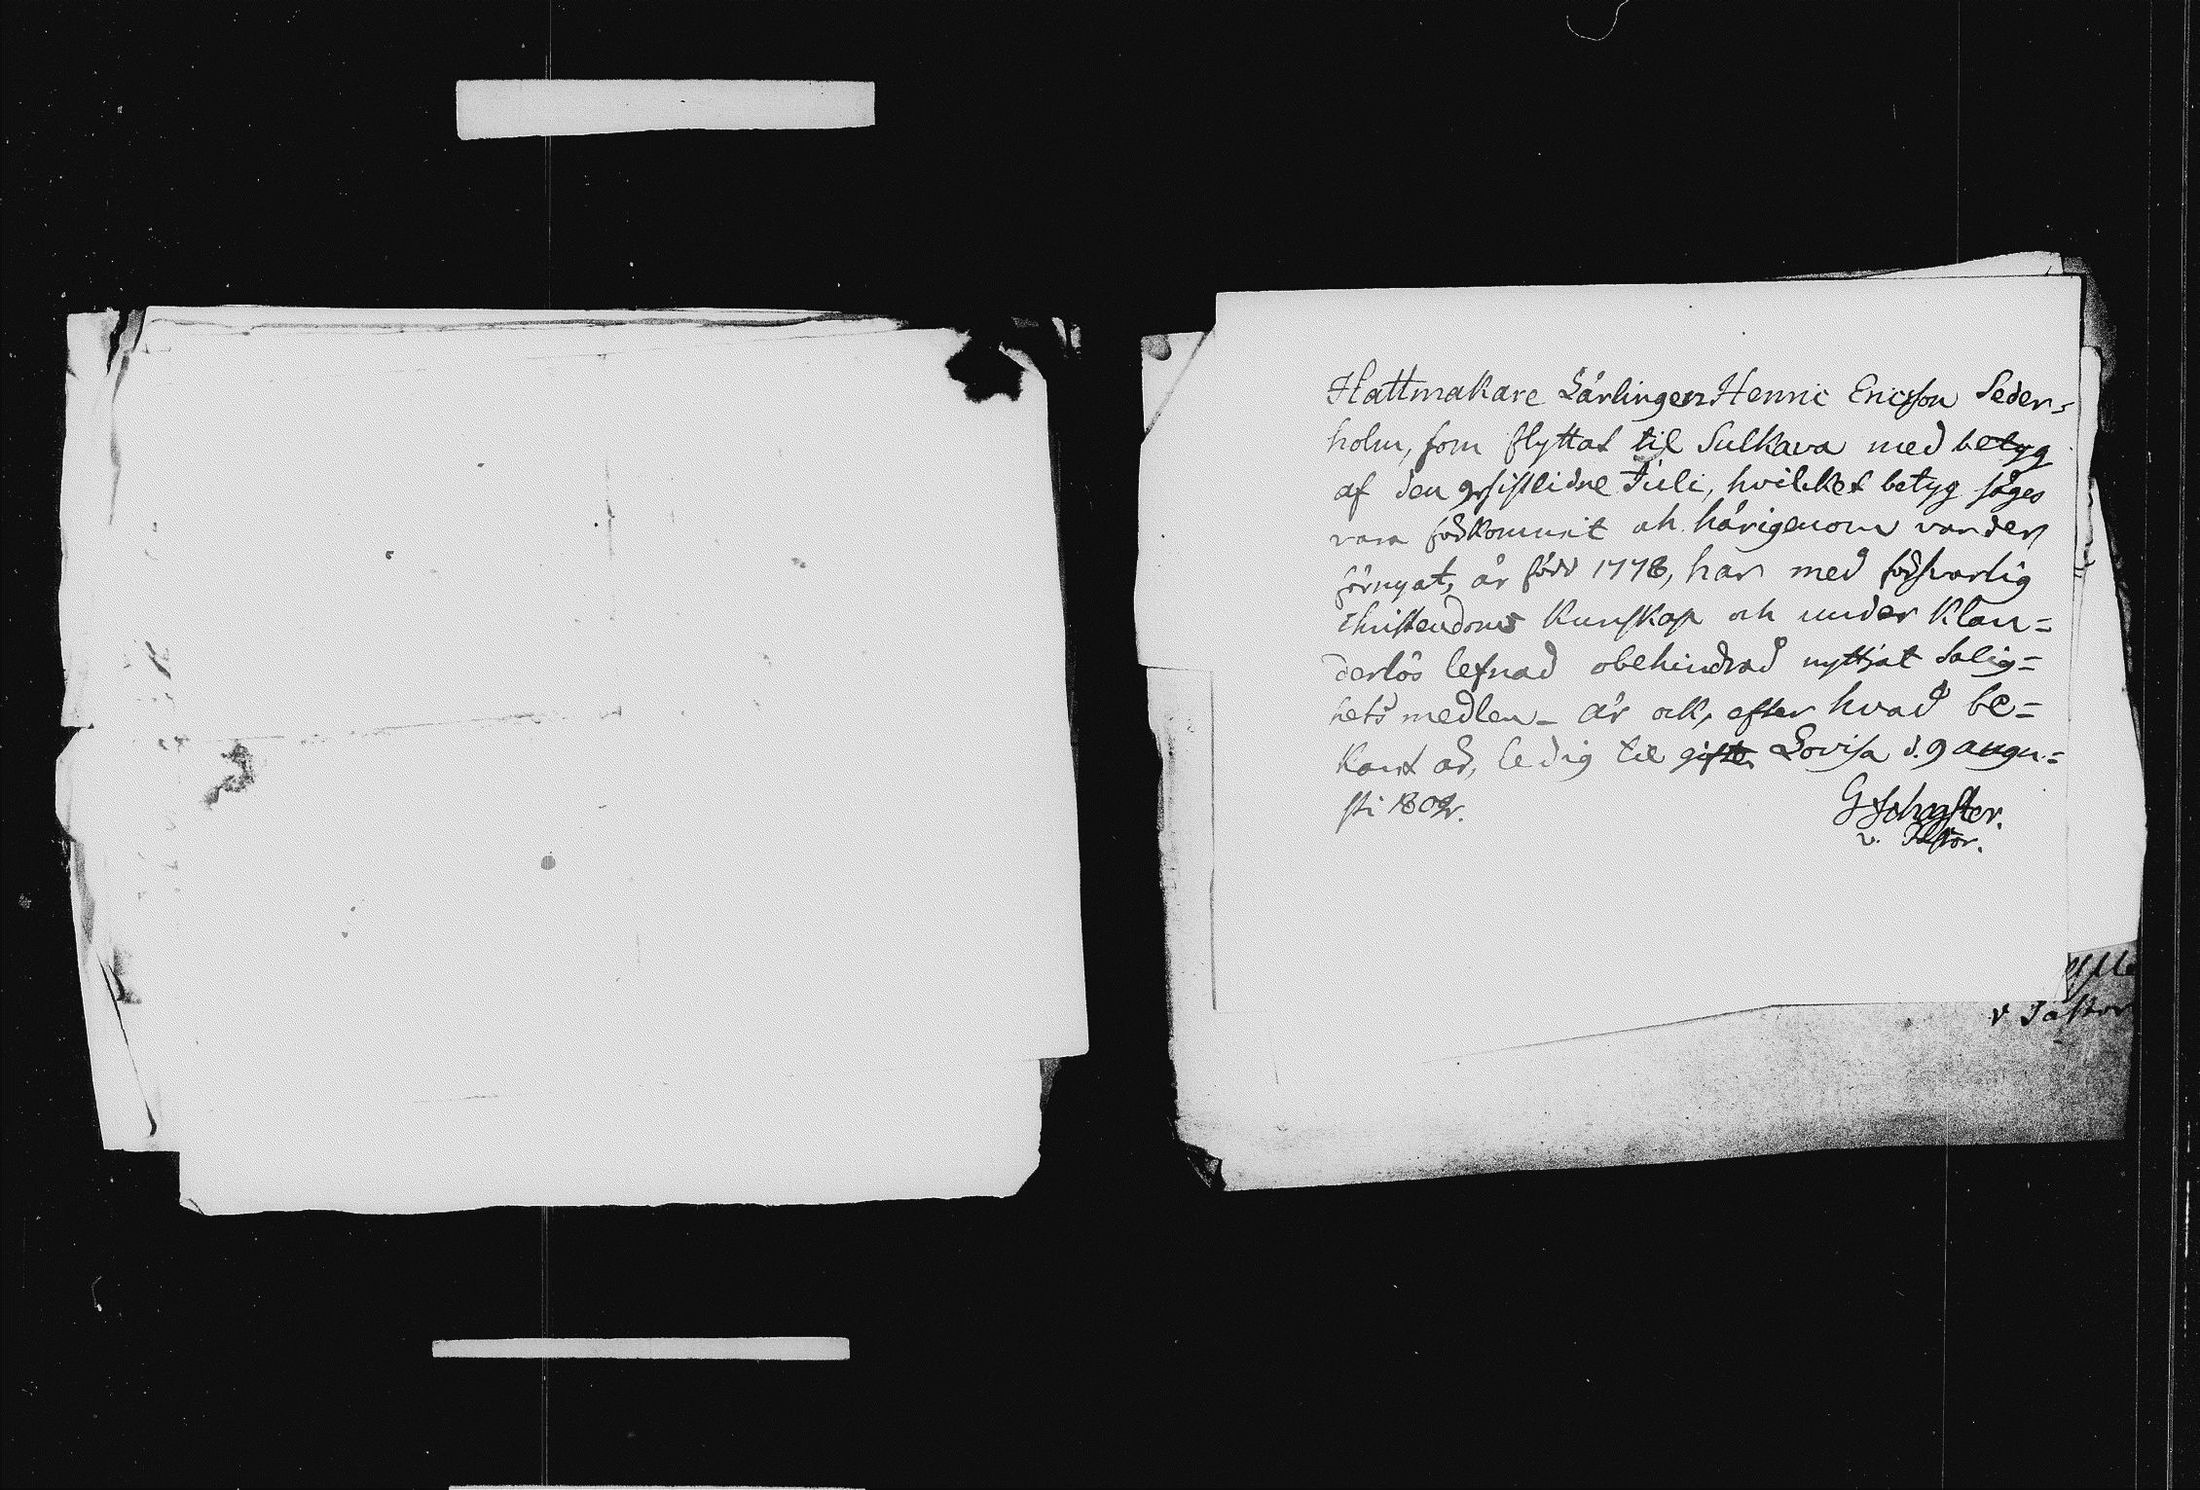 Hattmakare Lärlingen Henric Ericsson Seder=
holm, som flyttat til Sulkava med betyg
af den 9 sistlidne Juli, hvilket betyg säges
vara förkommit och härigenom varder
förnyat, är född 1778, har med försvarlig
Christendoms Kunskap och under Klan=
derlös lefnad obehindrad nyttjat Salig=
hets medlen – är ock, efter hvad be=
kant är, ledig til gifte. Lovisa d. 9 augu=
sti 1802.
v. Pastor.
v Pastor